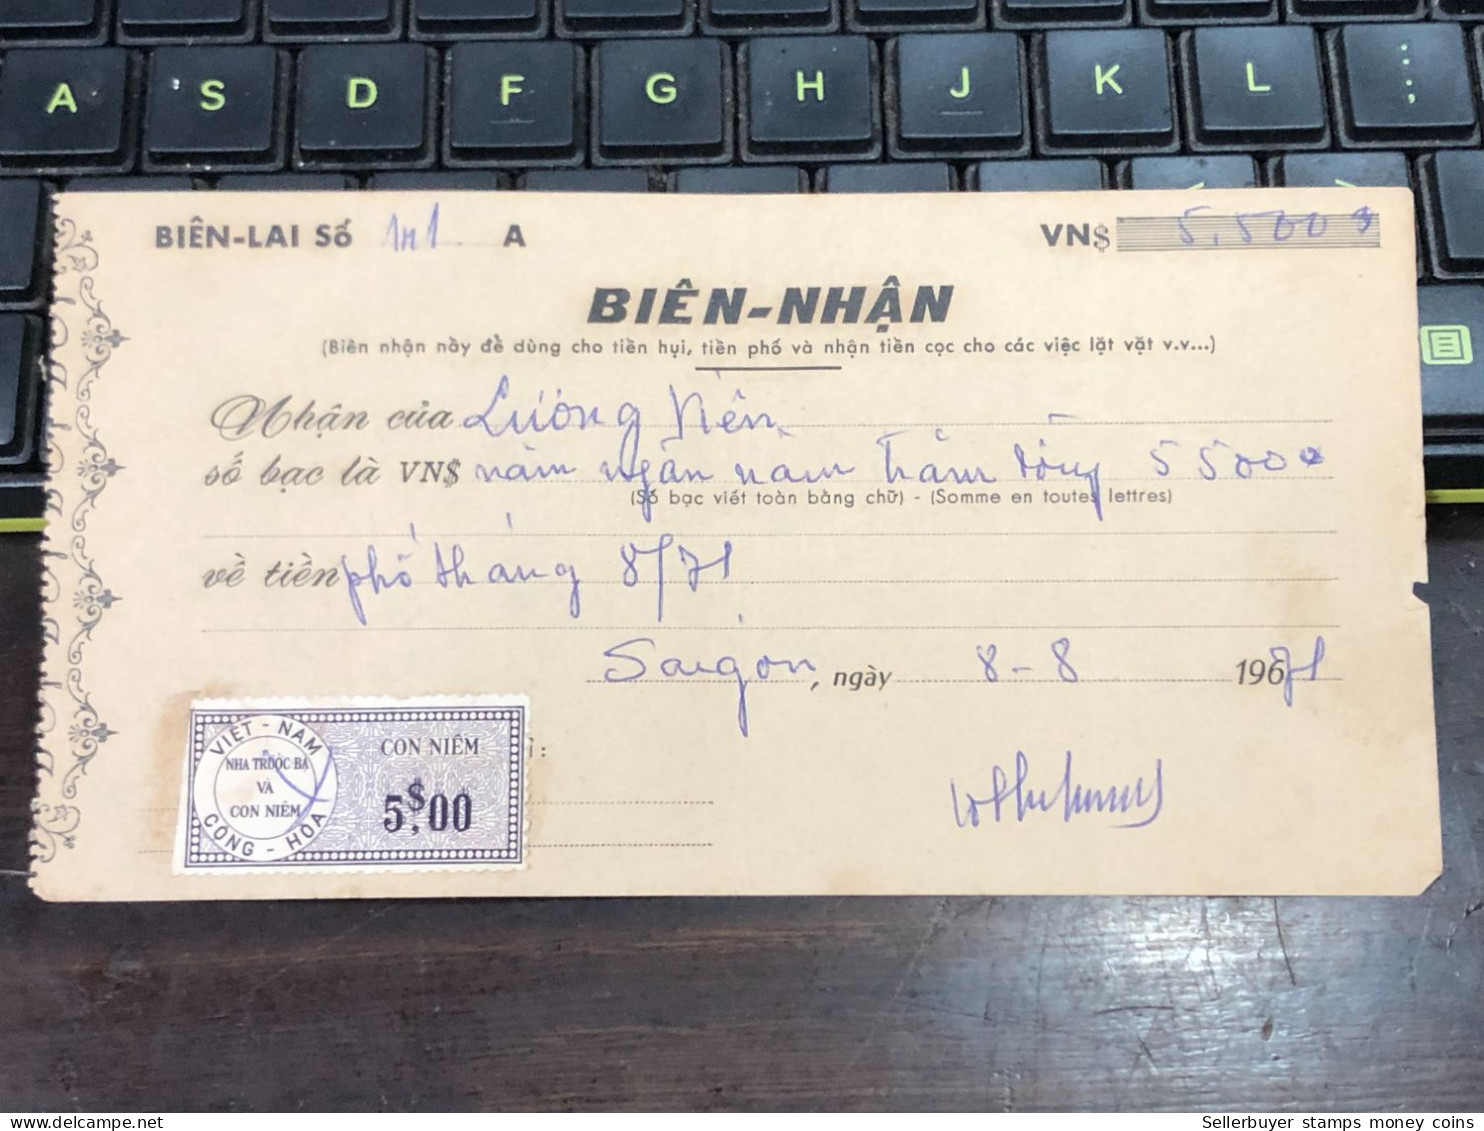 A S D F G H J K L ;
BIÊN-LAI Số A
VN$ 5.500$
BIÊN-NHẬN
(Biên nhận này để dùng cho tiền hụi, tiền phố và nhận tiền cọc cho các việc lặt vặt v.v...)
Nhận của Lương
số bạc là VN$ năm ngàn năm trăm đồng 5500$
(Số bạc viết toàn bằng chữ) - (Somme en toutes lettres)
về tiền phố tháng 8/71
Saigon, ngày 8-8 1971
VIỆT-NAM
CỘNG-HÒA
NHA TRƯỚC BẠ
VÀ
CON NIÊM
CON NIÊM
5$,00
ì :
Sellerbuyer stamps money coins
www.delcampe.net